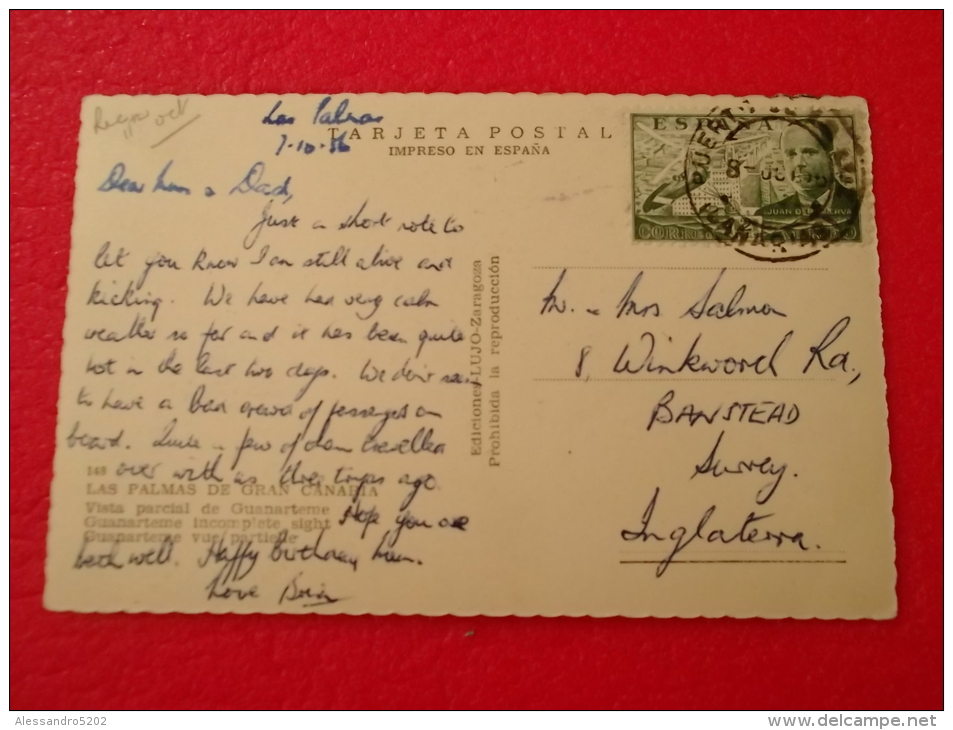 Las Palmas
7-10-56
TARJETA POSTAL
IMPRESO EN ESPAÑA
Dear Mum & Dad,
Just a short note to
let you know I am still alive and
kicking. We have had very calm
weather so far and it has been quite
hot in the last two days. We don't seem
to have a bad crowd of passengers on
board. Quite a few of them travelled
over with us three trips ago.
Hope you are
both well. Happy birthday Mum.
Love Brian
148
LAS PALMAS DE GRAN CANARIA
Vista parcial de Guanarteme
Guanarteme incomplete sight
Guanarteme vue partielle
Ediciones-LUJO-Zaragoza
Prohibida la reproducción
ESPAÑA
JUAN DE LA CIERVA
CORREO
8-
Mr. & Mrs Salmon
8, Winkworth Rd.,
BANSTEAD
Surrey.
Inglaterra.
Alessandro5202
www.delcampe.net